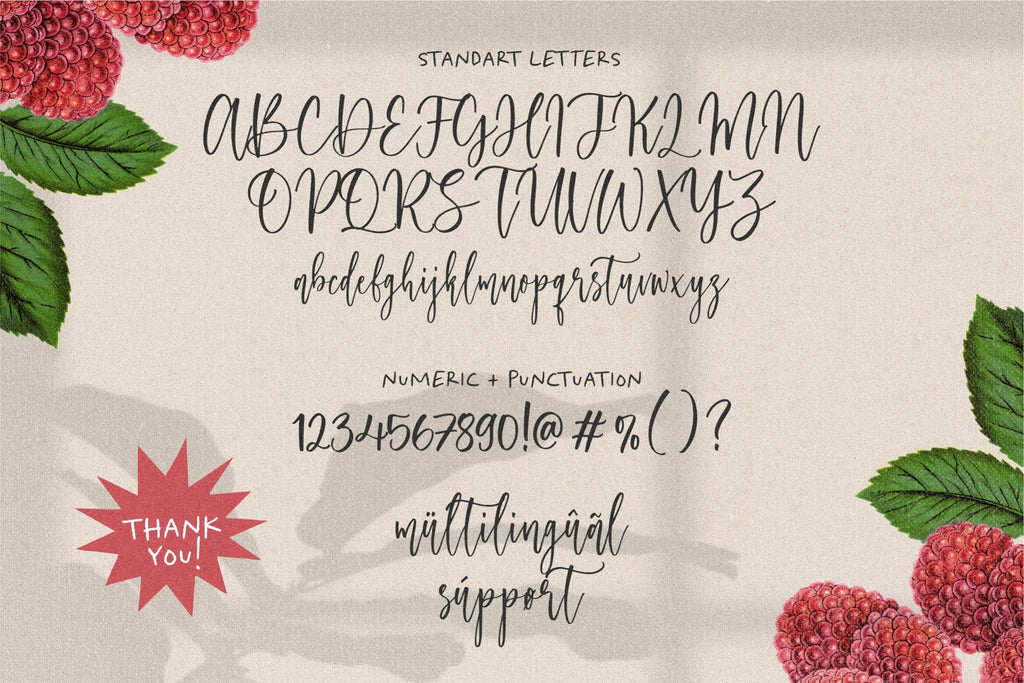 STANDART LETTERS
ABCDEFGHIJKLMN
OPQRSTUVWXYZ
abcdefghijklmnopqrstuvwxyz
NUMERIC + PUNCTUATION
1234567890!@#%()?
mültilingûãl
súppørt
THANK
YOU!